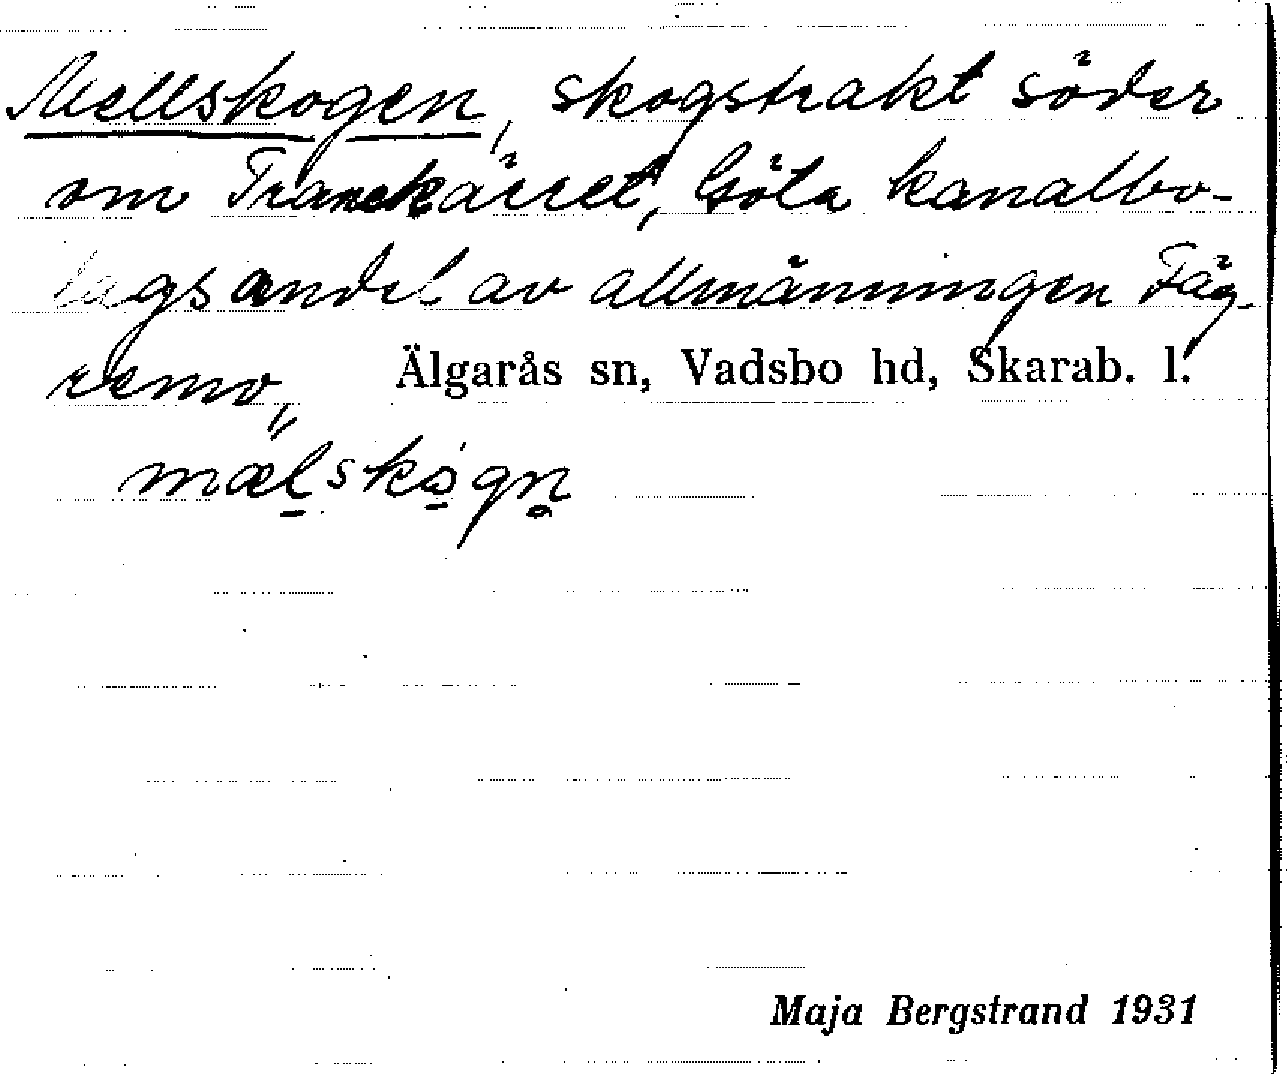 Mellskogen, skogstrakt söder
om Tranekärret, Göta kanalbo-
lagsandel av allmänningen Fäg-
remo,, Älgarås sn, Vadsbo hd, Skarab. l.
mæl̠skò̠gn̥
Maja Bergstrand 1931